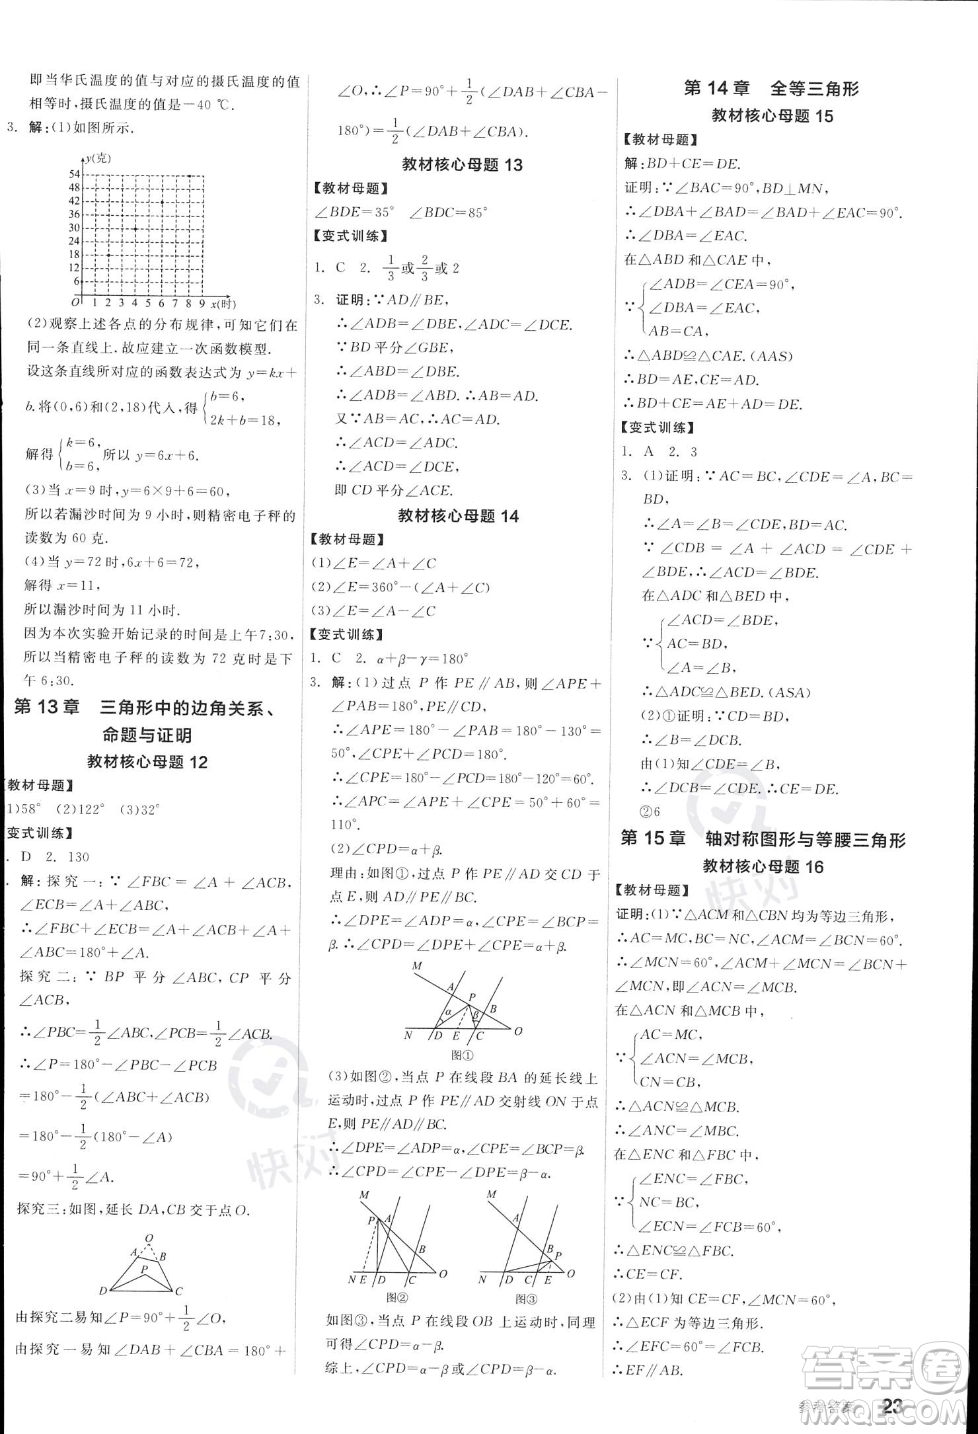 即当华氏温度的值与对应的摄氏温度的值
相等时,摄氏温度的值是-40 ℃.
3. 解:(1)如图所示.
y(克)
54
48
42
36
30
24
18
12
6
O 1 2 3 4 5 6 7 8 9 x(时)
(2)观察上述各点的分布规律,可知它们在
同一条直线上.故应建立一次函数模型.
设这条直线所对应的函数表达式为 y=kx+
b.将(0,6)和(2,18)代入,得{b=6,
2k+b=18,
解得{k=6,
b=6,
所以 y=6x+6.
(3)当 x=9 时,y=6×9+6=60.
所以若漏沙时间为 9 小时,则精密电子秤的
读数为 60 克.
(4)当 y=72 时,6x+6=72,
解得 x=11,
所以漏沙时间为 11 小时.
因为本次实验开始记录的时间是上午7:30,
所以当精密电子秤的读数为 72 克时是下
午 6:30.
第 13 章 三角形中的边角关系、
命题与证明
教材核心母题 12
【教材母题】
(1)58° (2)122° (3)32°
【变式训练】
. D 2. 130
. 解:探究一:∵∠FBC=∠A+∠ACB,
∠ECB=∠A+∠ABC,
∴∠FBC+∠ECB=∠A+∠ACB+∠ABC
+∠A=180°+∠A.
探究二:∵BP 平分∠ABC,CP 平分
∠ACB,
∴∠PBC=1/2∠ABC,∠PCB=1/2∠ACB.
∴∠P=180°-∠PBC-∠PCB
=180°-1/2(∠ABC+∠ACB)
=180°-1/2(180°-∠A)
=90°+1/2∠A.
探究三:如图,延长 DA,CB 交于点O.
O
A B
P
D C
由探究二易知∠P=90°+1/2∠O,
由探究一易知∠DAB+∠CBA=180°+
∠O,∴∠P=90°+1/2(∠DAB+∠CBA-
180°)=1/2(∠DAB+∠CBA).
教材核心母题 13
【教材母题】
∠BDE=35° ∠BDC=85°
【变式训练】
1. C 2. 1/3或2/3或 2
3. 证明:∵AD∥BE,
∴∠ADB=∠DBE,∠ADC=∠DCE.
∵BD 平分∠GBE,
∴∠ABD=∠DBE.
∴∠ADB=∠ABD.∴AB=AD.
又∵AB=AC,∴AC=AD.
∴∠ACD=∠ADC.
∴∠ACD=∠DCE,
即 CD 平分∠ACE.
教材核心母题 14
【教材母题】
(1)∠E=∠A+∠C
(2)∠E=360°-(∠A+∠C)
(3)∠E=∠A-∠C
【变式训练】
1. C 2. α+β-γ=180°
3. 解:(1)过点 P 作 PE∥AB,则∠APE+
∠PAB=180°,PE∥CD.
∴∠APE=180°-∠PAB=180°-130°=
50°,∠CPE+∠PCD=180°.
∴∠CPE=180°-∠PCD=180°-120°=60°.
∴∠APC=∠APE+∠CPE=50°+60°=
110°.
(2)∠CPD=α+β.
理由如下:如图①,过点 P 作 PE∥AD 交
ON 于点 E,则 AD∥PE∥BC.
∴∠DPE=∠ADP=α,∠CPE=∠BCP=
β.∴∠CPD=∠DPE+∠CPE=α+β.
M
A
P
B
α
β
N D E C O
图①
(3)如图②,当点 P 在线段 BA 的延长线上
运动时,过点 P 作 PE∥AD 交射线 ON 于点
E,则 PE∥AD∥BC.
∴∠DPE=∠ADP=α,∠CPE=∠BCP=β.
∴∠CPD=∠CPE-∠DPE=β-α.
M
P A
B
N E D C O
图②
M
A
B
P
N D C E O
图③
如图③,当点 P 在线段 OB 上运动时,同理
可得∠CPD=α-β.
综上,∠CPD=α-β或∠CPD=β-α.
第 14 章 全等三角形
教材核心母题 15
【教材母题】
解:BD+CE=DE.
证明:∵∠BAC=90°,BD⊥MN,
∴∠DBA+∠BAD=∠BAD+∠CAE=90°.
∴∠DBA=∠CAE.
在△ABD 和△CAE 中,
∵{∠ADB=∠CEA=90°,
∠DBA=∠EAC,
AB=CA,
∴△ABD≌△CAE.(AAS)
∴BD=AE,CE=AD.
∴BD+CE=AE+AD=DE.
【变式训练】
1. A 2. 3
3. (1)证明:∵AC=BC,∠CDE=∠A,AC=
BD,
∴∠A=∠B=∠CDE,BD=BC.
∵∠CDB=∠A+∠ACD=∠CDE+
∠BDE,∴∠ACD=∠BDE.
在△ADC 和△BED 中,
∵{∠ACD=∠BDE,
AC=BD,
∠A=∠B,
∴△ADC≌△BED.(ASA)
(2)①证明:∵CD=BD,
∴∠B=∠DCB.
由(1)知∠CDE=∠B.
∴∠DCB=∠CDE.∴CE=DE.
②6
第 15 章 轴对称图形与等腰三角形
教材核心母题 16
【教材母题】
证明:(1)∵△ACM 和△CBN 均为等边三角形,
∴AC=MC,BC=NC,∠ACM=∠BCN=60°.
∴∠ACM+∠MCN=∠BCN+
∠MCN,即∠ACN=∠MCB.
在△ACN 和△MCB 中,
∵{AC=MC,
∠ACN=∠MCB,
CN=CB,
∴△ACN≌△MCB.
∴∠ANC=∠MBC.
在△ENC 和△FBC 中,
∵{∠ENC=∠FBC,
NC=BC,
∠ECN=∠FCB=60°,
∴△ENC≌△FBC.
∴CE=CF.
(2)由(1)知 CE=CF,∠MCN=60°,
∴△ECF 为等边三角形.
∴∠EFC=60°=∠BCN.
∴EF∥AB.
参考答案 23
快对
快对
答案圈